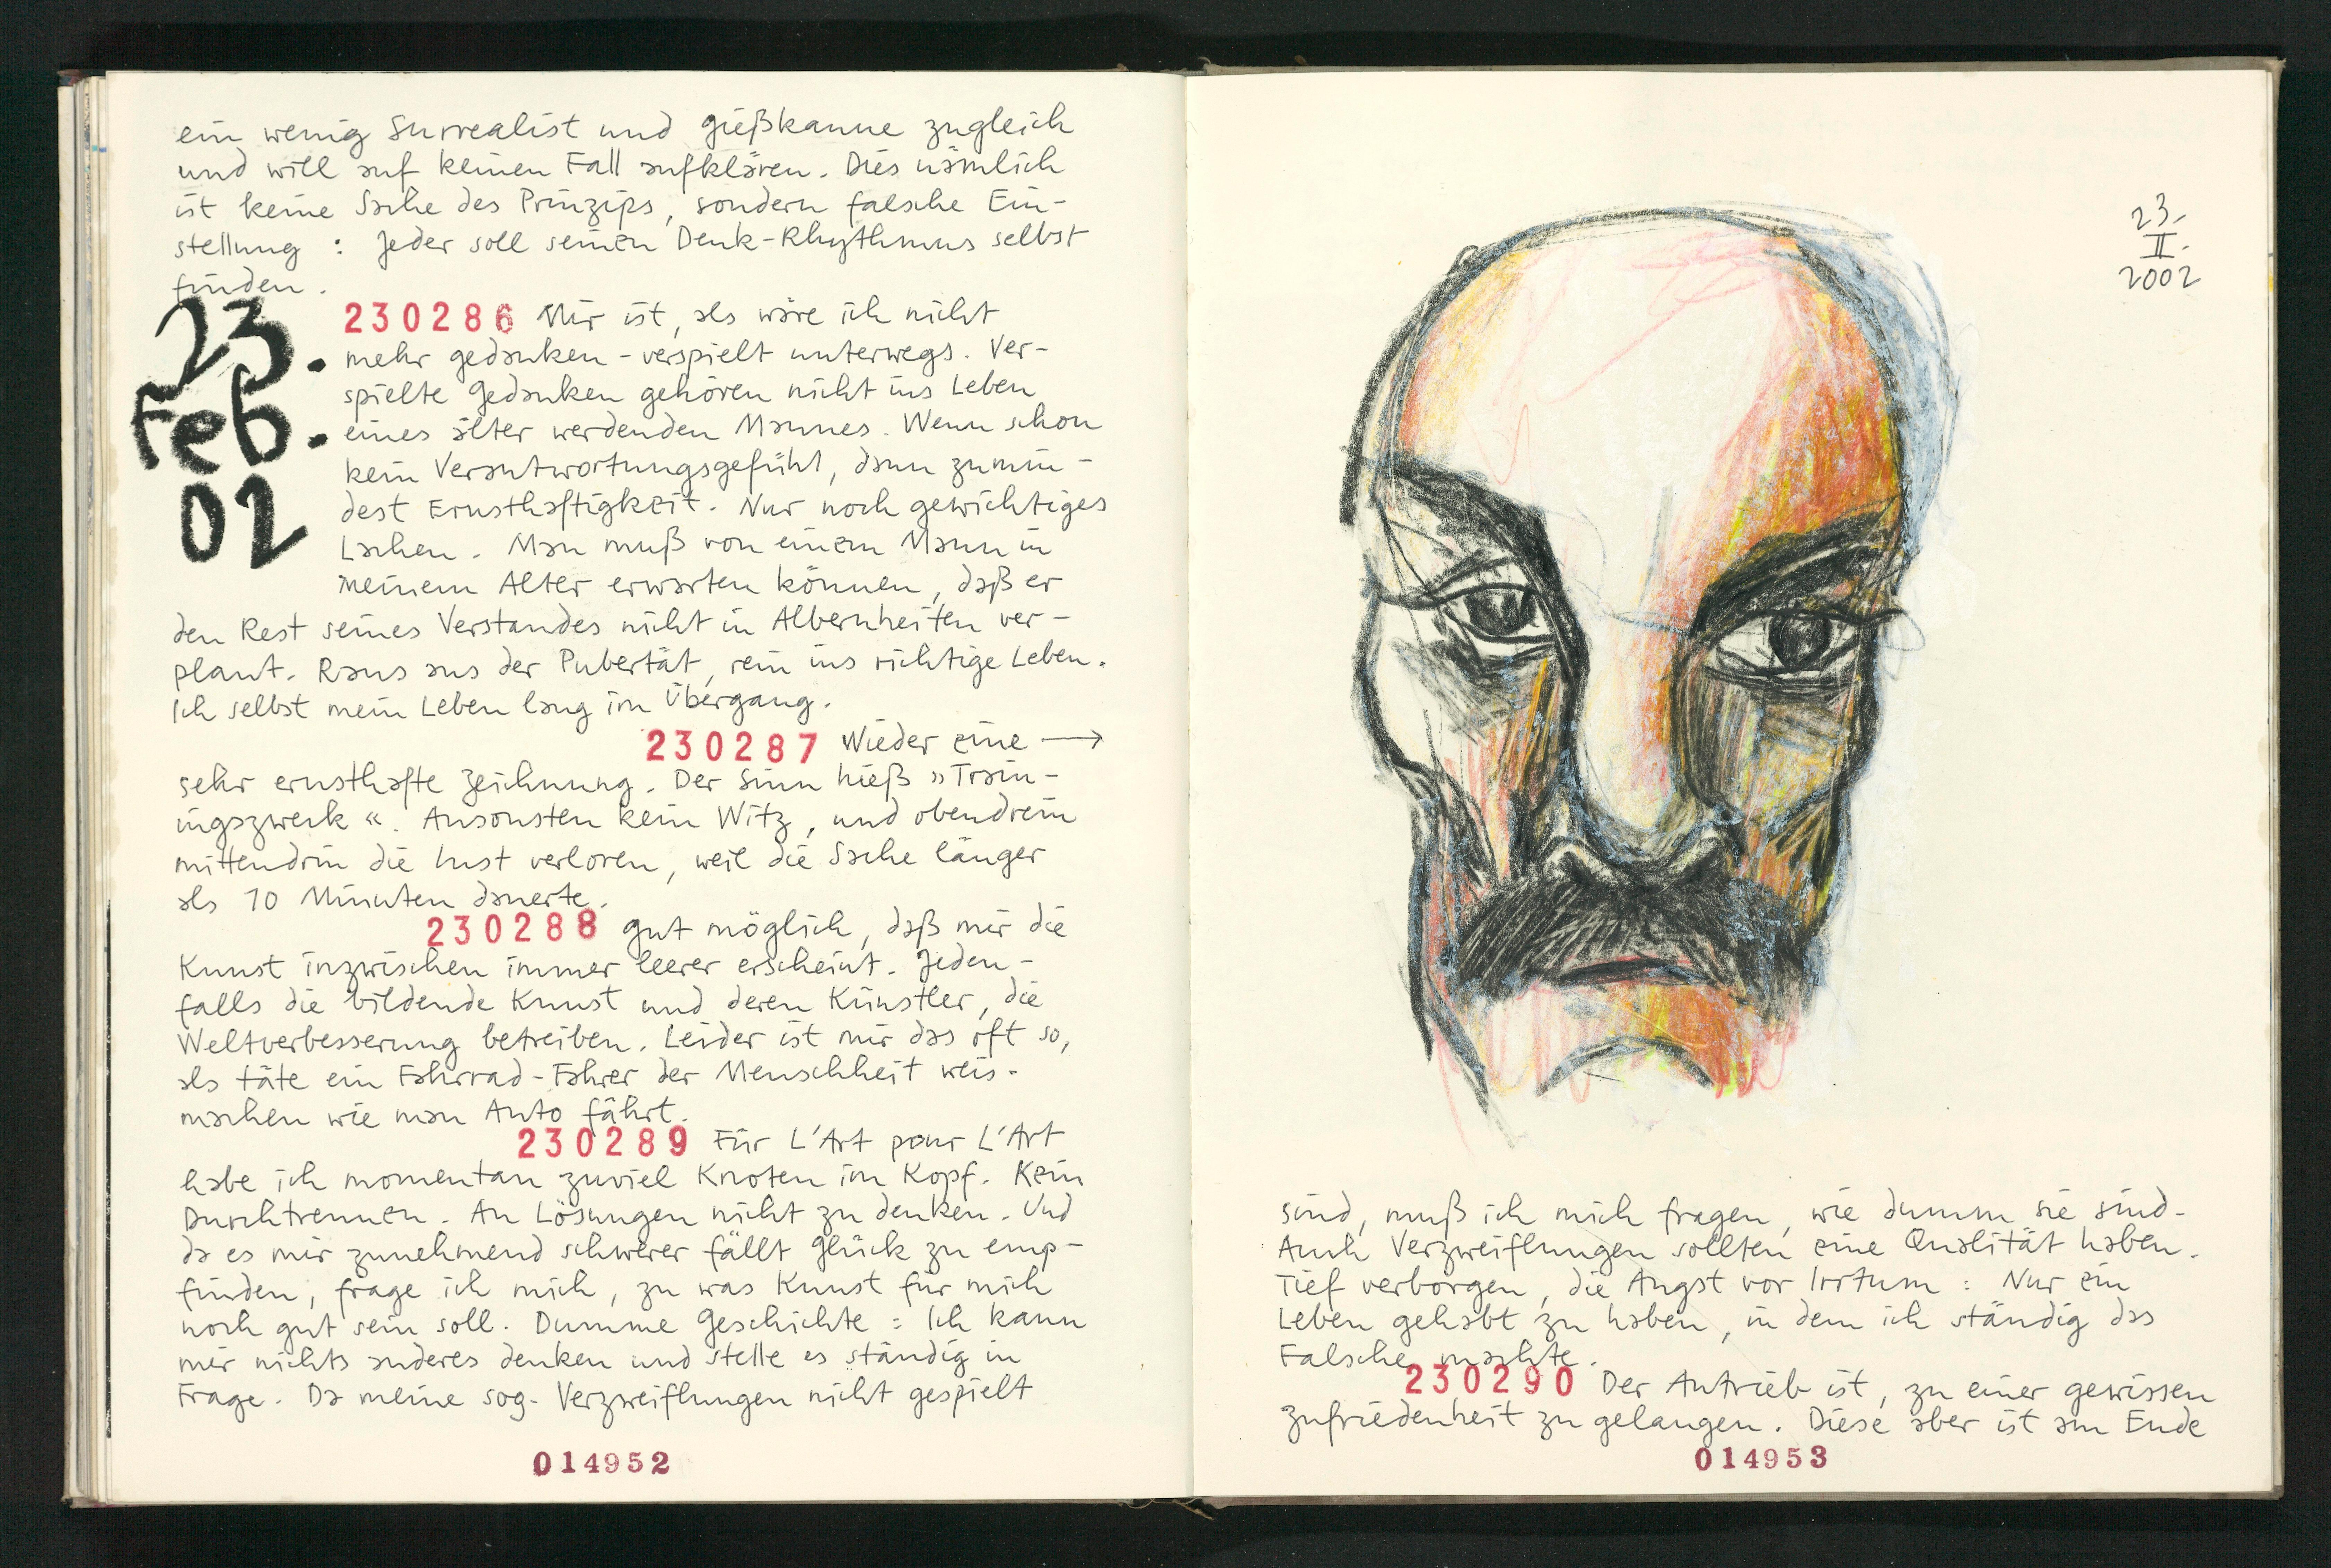 ein wenig Surrealist und gießkanne zugleich
und will auf keinen Fall aufklären. Dies nämlich
ist keine Sache des Prinzips, sondern falsche Ein-
stellung : Jeder soll seinen Denk-Rhythmus selbst
finden.
23.
Feb.
02
230286 Mir ist, als wäre ich nicht
mehr gedanken-verspielt unterwegs. Ver-
spielte Gedanken gehören nicht ins Leben
eines älter werdenden Mannes. Wenn schon
kein Verantwortungsgefühl, dann zumin-
dest Ernsthaftigkeit. Nur noch gewichtiges
Lachen. Man muß von einem Mann in
meinem Alter erwarten können, daß er
den Rest seines Verstandes nicht in Albernheiten ver-
plant. Raus aus der Pubertät, rein ins richtige Leben.
Ich selbst mein Leben lang im Übergang.
230287 Wieder eine →
sehr ernsthafte Zeichnung. Der Sinn hieß »Train-
ingszweck«. Ansonsten kein Witz, und obendrein
mittendrin die Lust verloren, weil die Sache länger
als 10 Minuten dauerte.
230288 Gut möglich, daß mir die
Kunst inzwischen immer leerer erscheint. Jeden-
falls die bildende Kunst und deren Künstler, die
Weltverbesserung betreiben. Leider ist mir das oft so,
als täte ein Fahrrad-Fahrer der Menschheit weis-
machen wie man Auto fährt.
230289 Für L'Art pour L'Art
habe ich momentan zuviel Knoten im Kopf. Kein
Durchtrennen. An Lösungen nicht zu denken. Und
da es mir zunehmend schwerer fällt Glück zu emp-
finden, frage ich mich, zu was Kunst für mich
noch gut sein soll. Dumme Geschichte : Ich kann
mir nichts anderes denken und stelle es ständig in
Frage. Da meine sog. Verzweiflungen nicht gespielt
014952
23.
II.
2002
sind, muß ich mich fragen, wie dumm sie sind.
Auch Verzweiflungen sollten eine Qualität haben.
Tief verborgen, die Angst vor Irrtum : Nur ein
Leben gehabt zu haben, in dem ich ständig das
Falsche machte.
230290 Der Antrieb ist, zu einer gewissen
Zufriedenheit zu gelangen. Diese aber ist am Ende
014953